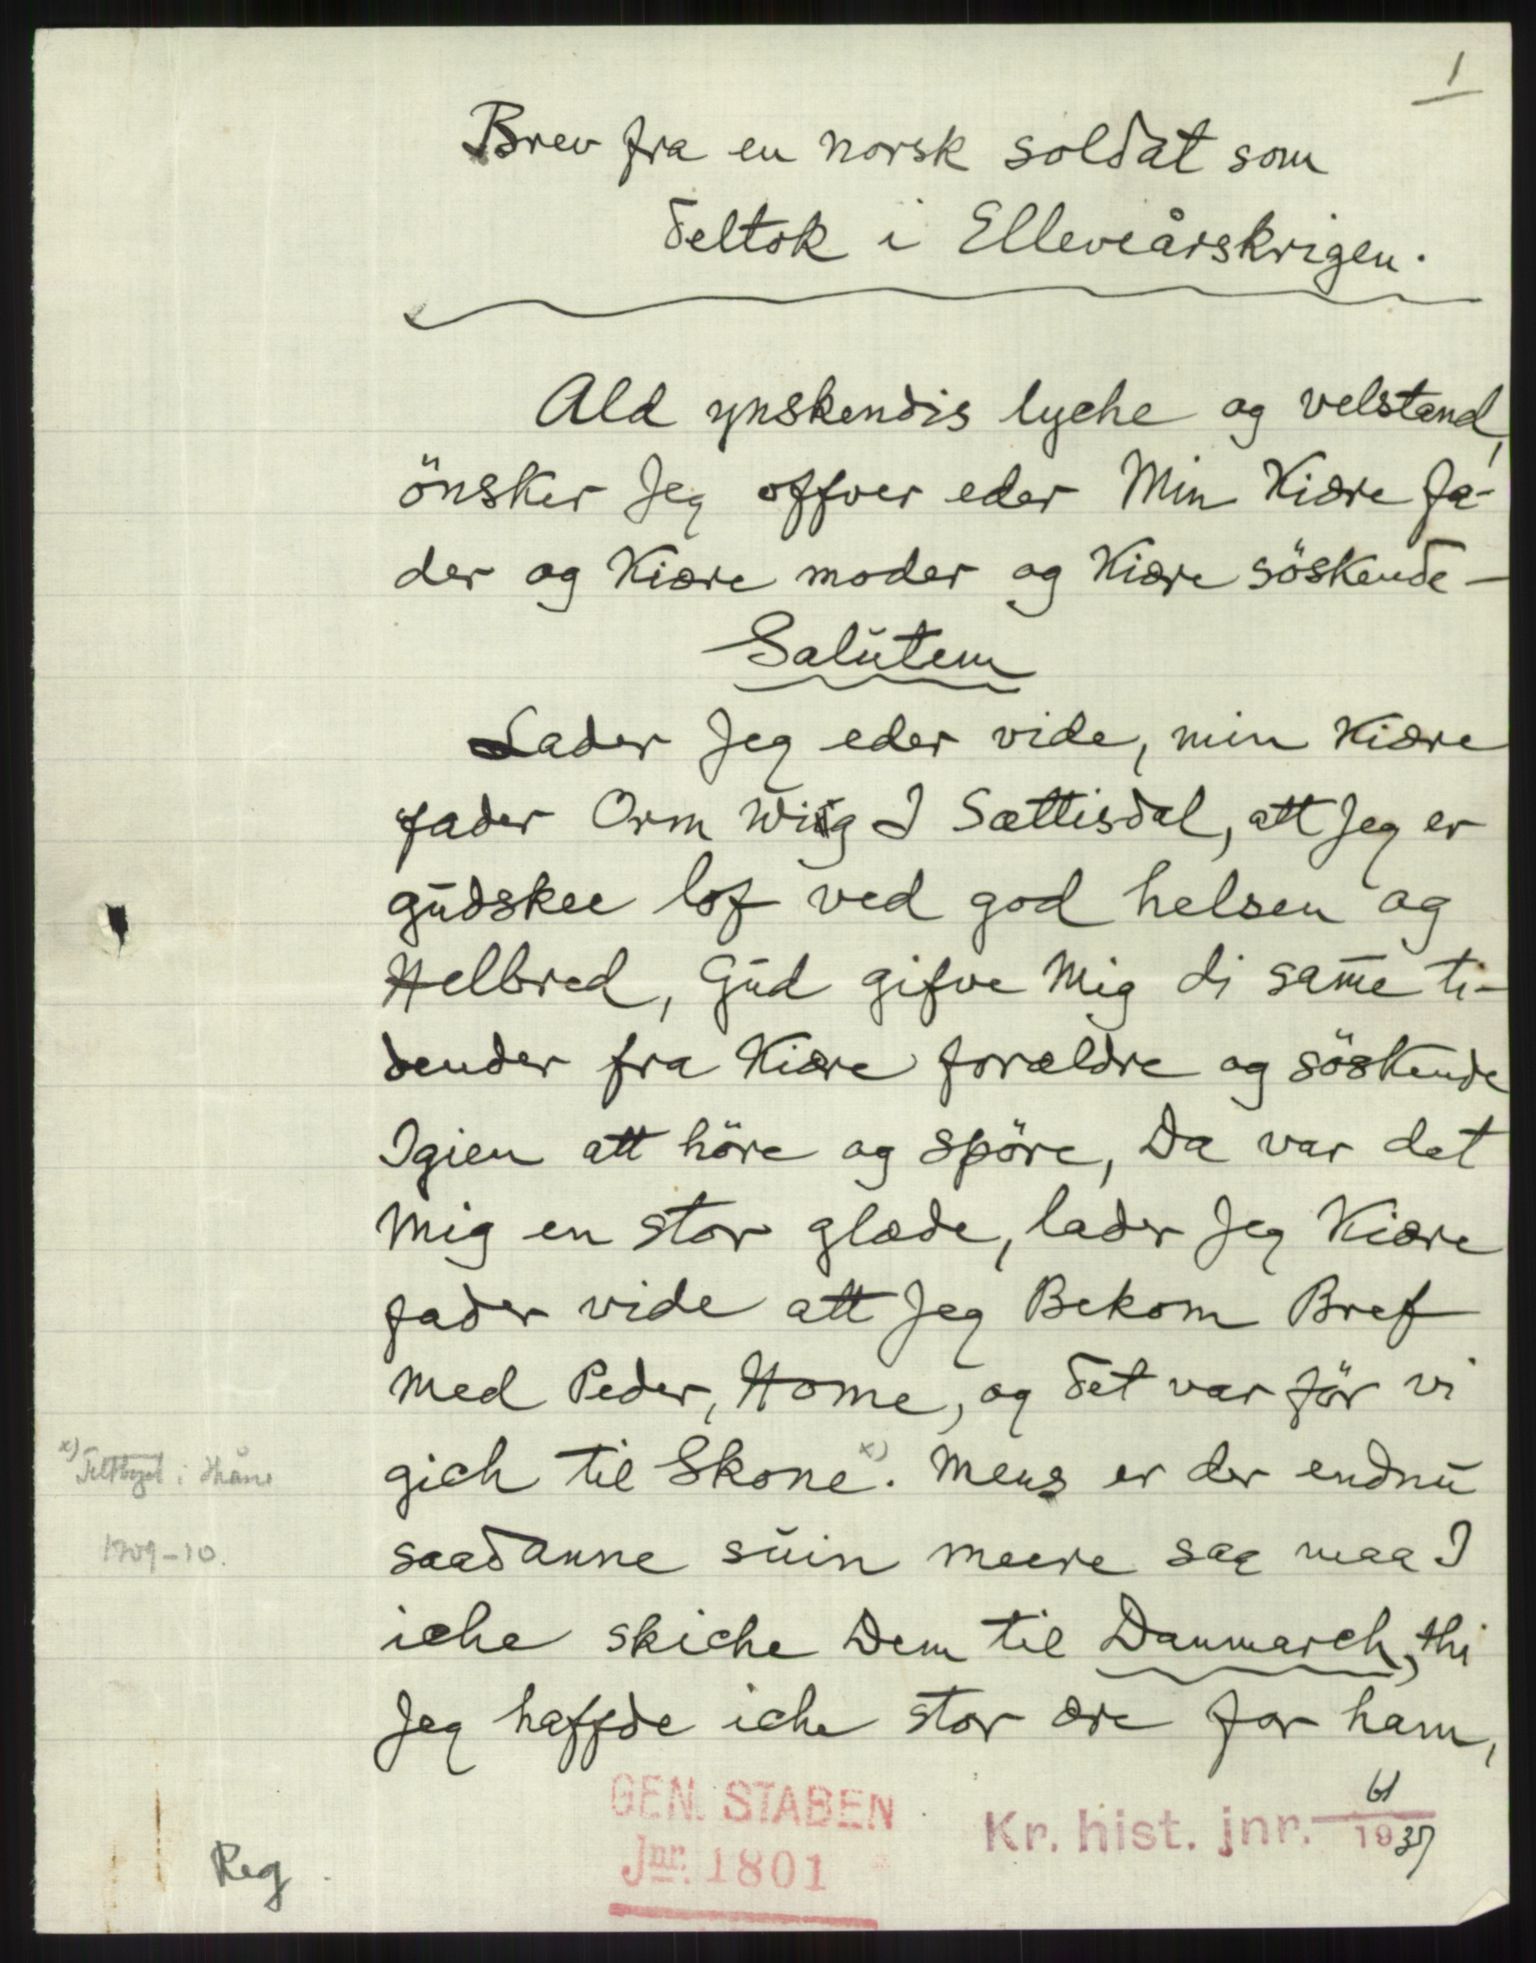 1
Brev fra en norsk soldat som
deltok i Elleveårskrigen.
Ald ynskendis lyche og velstand,
önsker Jeg offver eder Min Kiære fa-
der og Kiære moder og Kiære söskende —
Salutem
Lader Jeg eder vide, min Kiære
fader Orm Wiig I Sættisdal, att Jeg er
gudskee lof ved god helsen og
Helbred, Gud gifve Mig di same ti-
dender fra Kiære forældre og söskende
Igien att höre og spöre, Da var det
Mig en stor glæde, lader Jeg Kiære
fader vide att Jeg Bekom Bref
med Peder, Home, og det var för vi
gich til Skone x). Mens er der endnu
x) Felttoget i Skåne
1709-10.
saadanne suin meere saa maa I
iche skiche Dem til Danmarch, thi
Jeg haffde iche stor ære for ham,
GEN. STABEN
Jnr. 1801
Kr. hist. jnr. 61/1937
Reg.